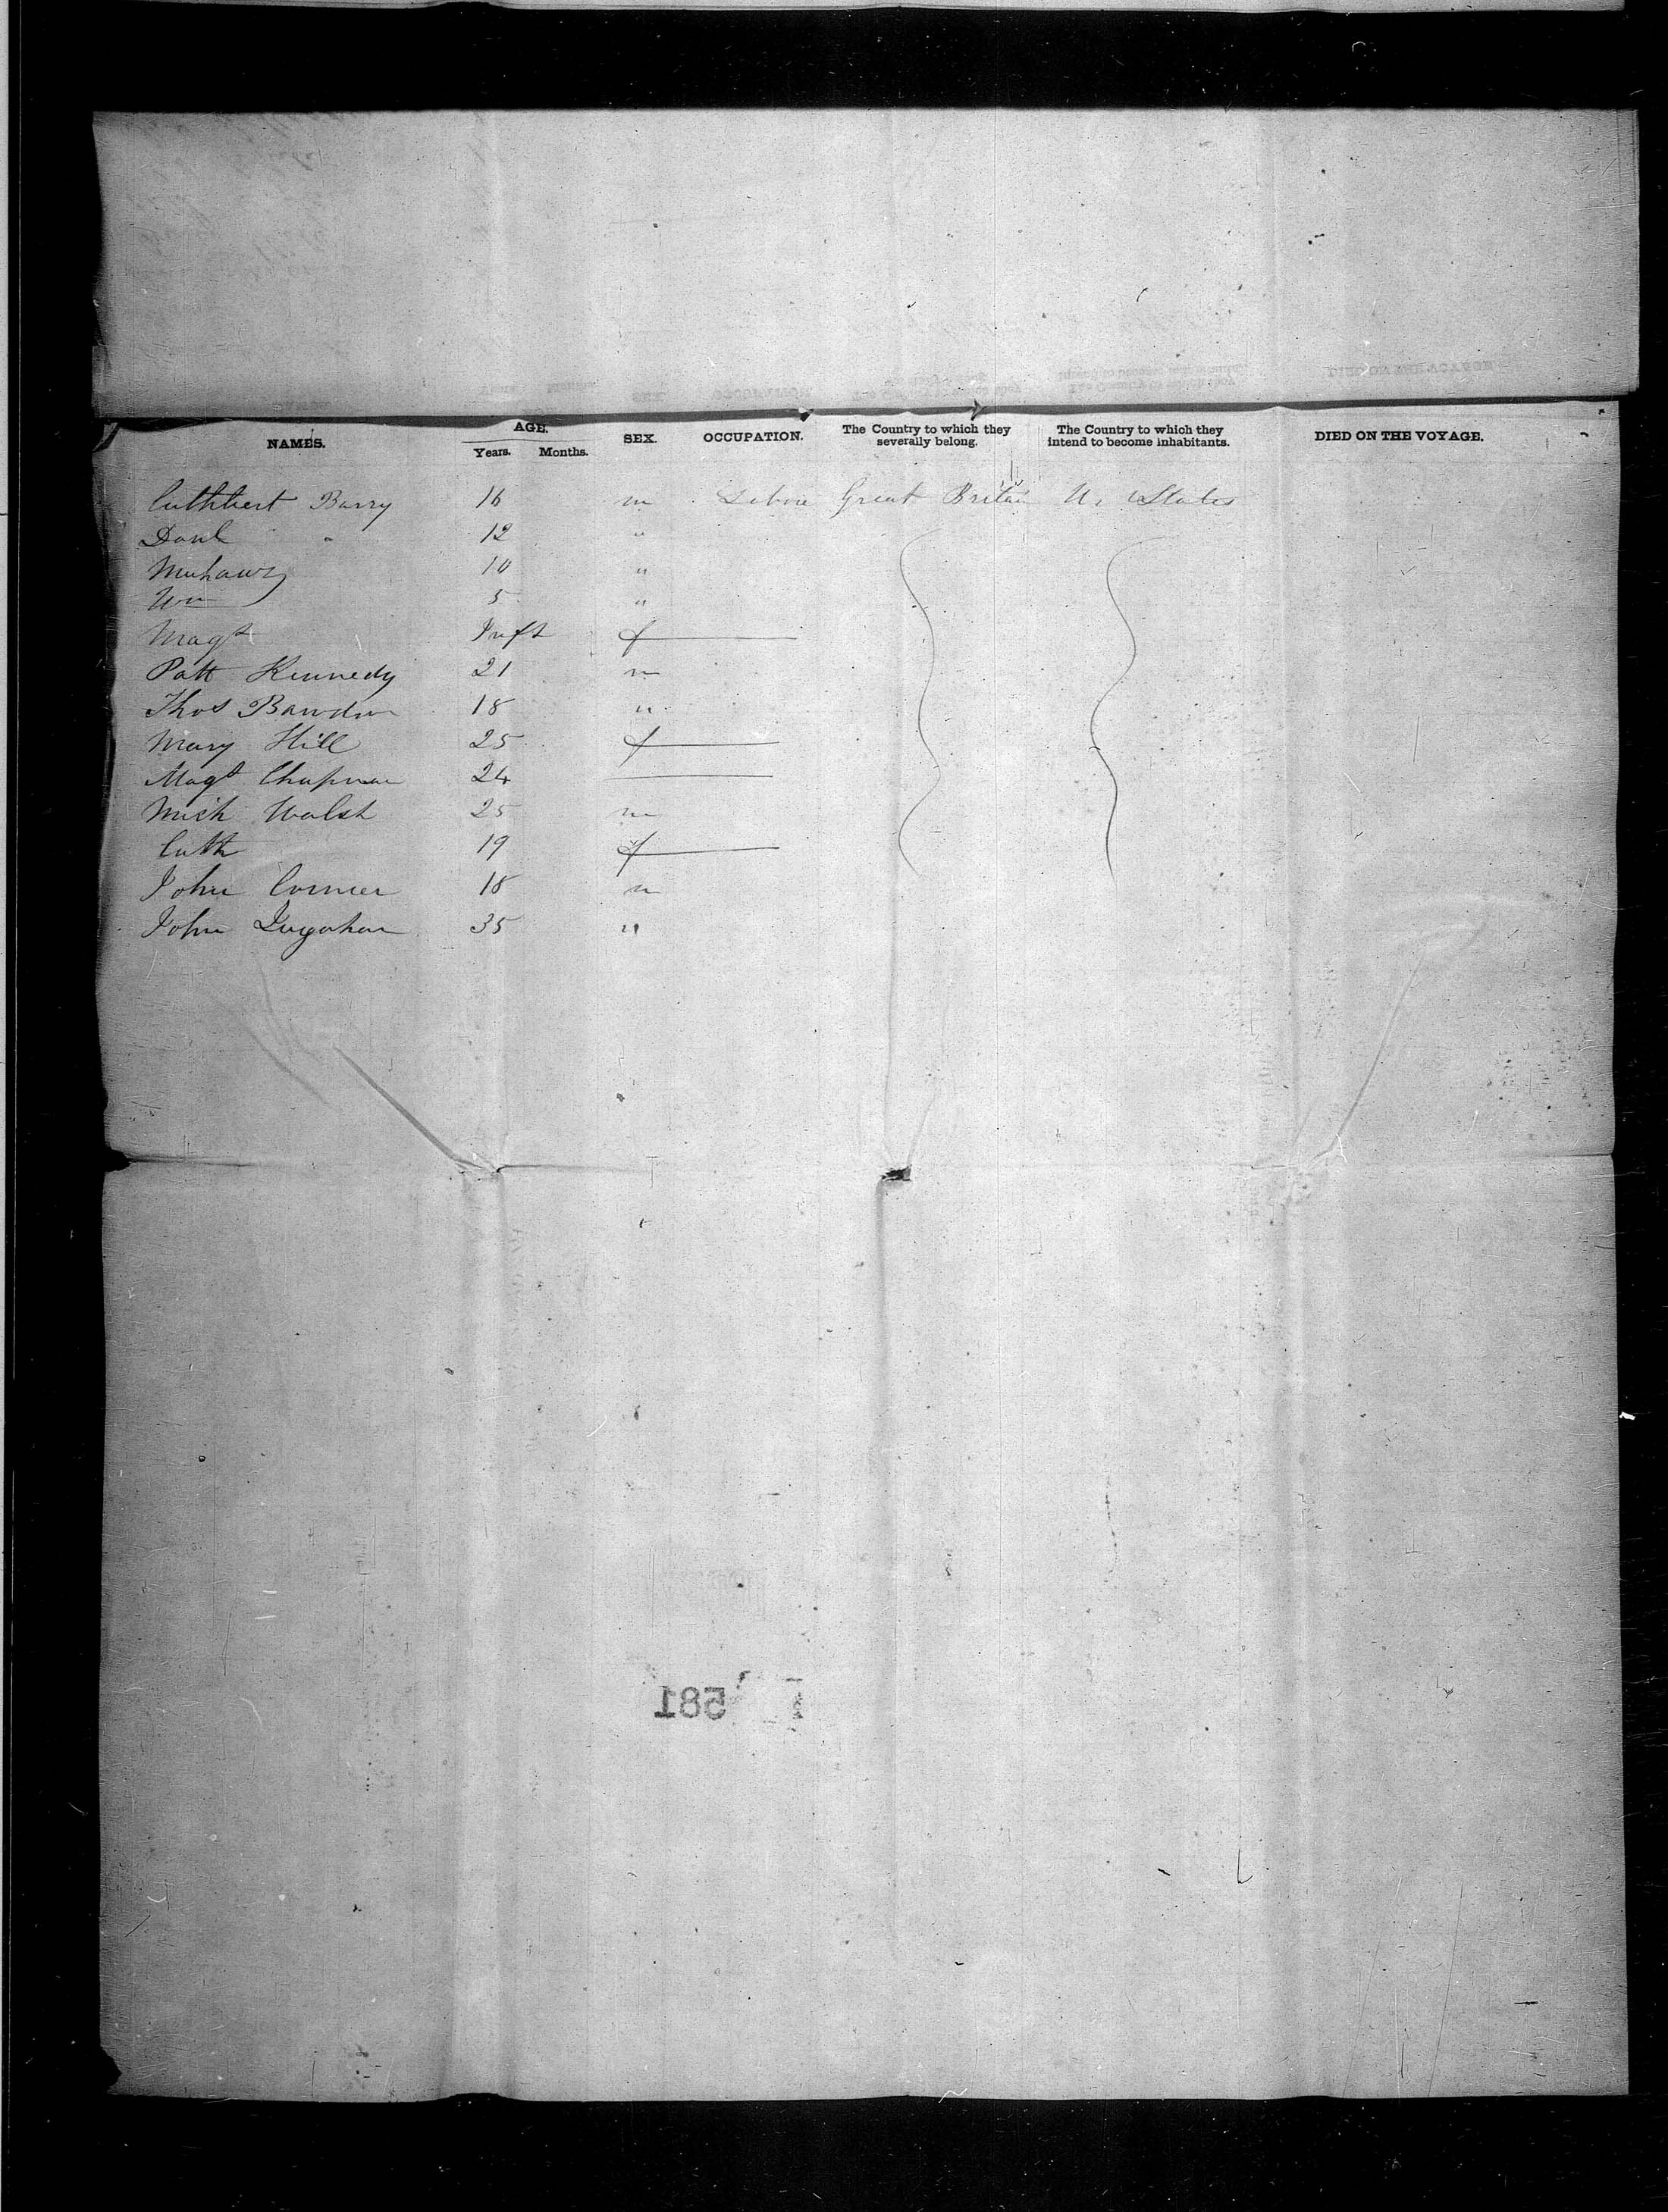 NAMES. AGE. Years. Months. SEX. OCCUPATION. The Country to which they severally belong. The Country to which they intend to become inhabitants. DIED ON THE VOYAGE.
Cuthbert Barry 16 m Great Britain U. States
Danl " 12 "
10 "
Wm 5 "
Magt Inft f
Patt Kennedy 21 m
Thos 18 "
Mary Hill 25 f
Magt Chapman 24
Mich Walsh 25 m
Cath 19 f
John Connor 18 m
John 35 "
581